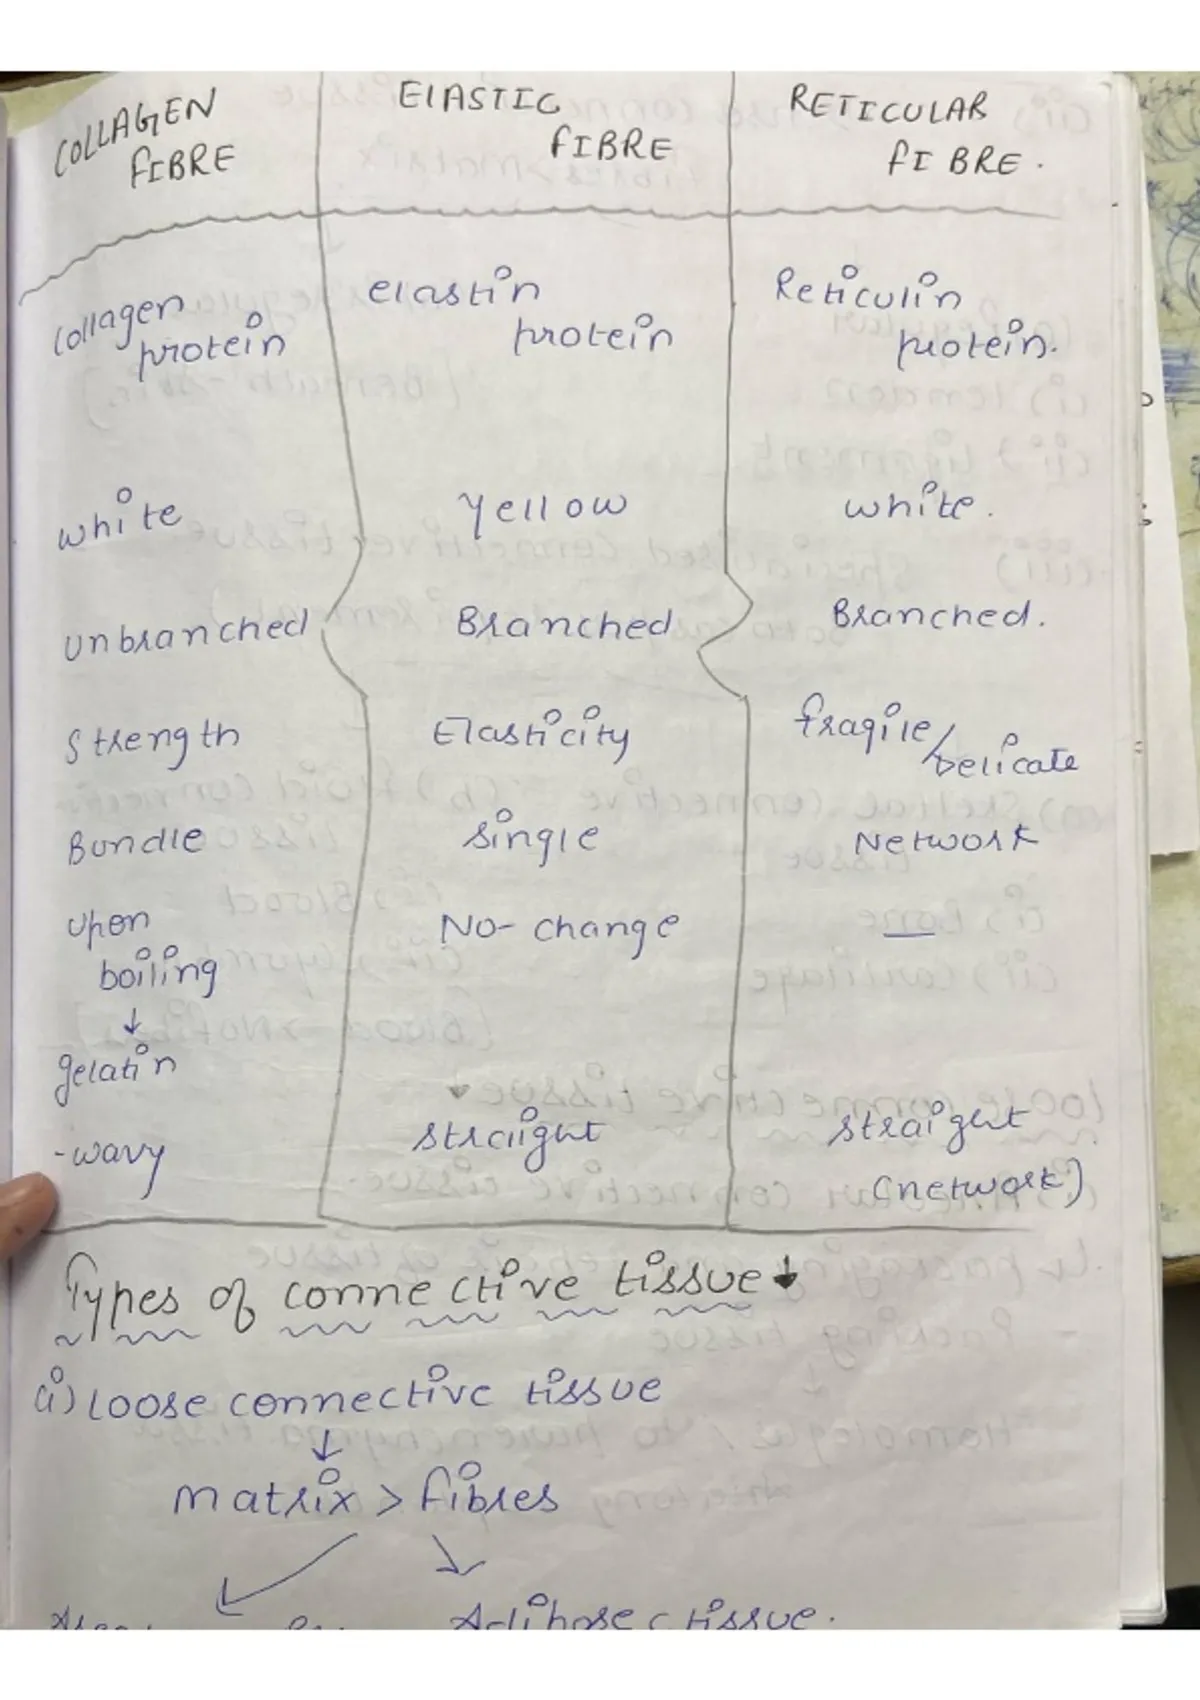 COLLAGEN FIBRE
ElASTIC FIBRE
RETICULAR FIBRE.
collagen protein
elastin protein
Reticulin protein.
white
yellow
white.
unbranched
Branched
Branched.
Strength
Elasticity
fragile/Delicate
Bundle
single
Network
upon boiling
↓
gelatin
No-change
—
-wavy
straight
straight
(network)
Types of connective tissue ↓
(i) Loose connective tissue
↓
matrix > fibres
Adipose tissue.